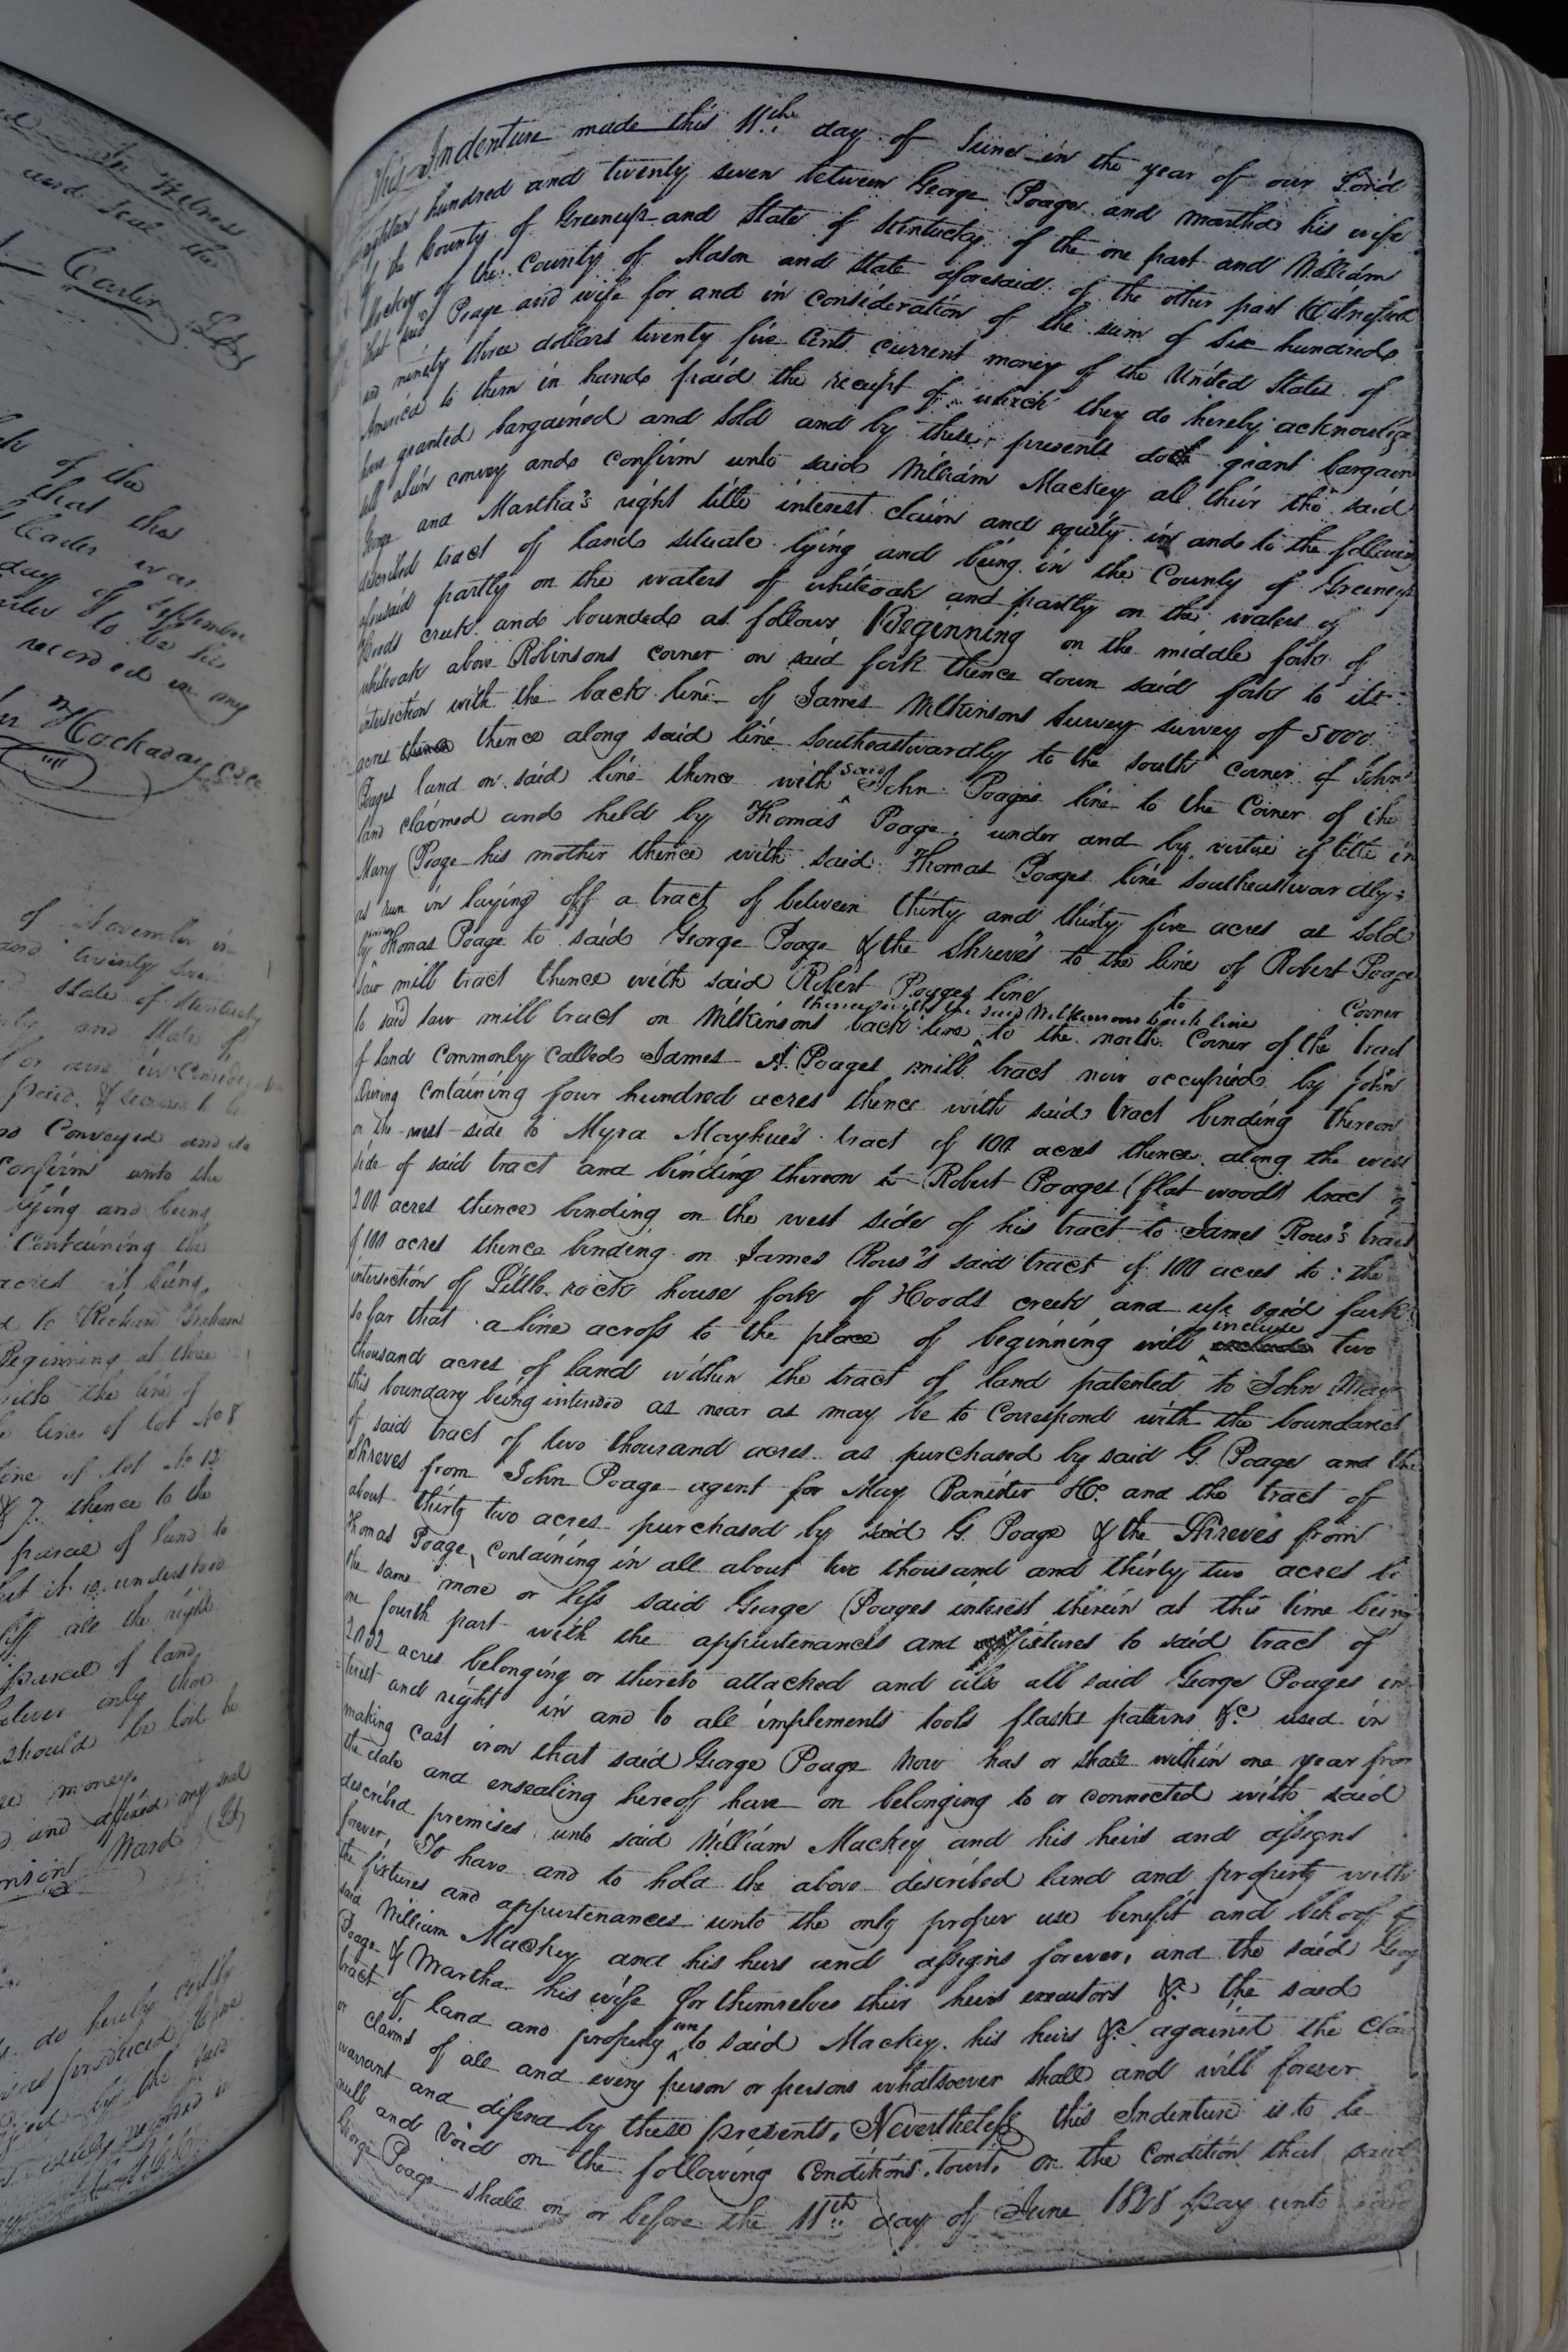 In Witness
and Seal the
Carter
of the
that the
leader was
day of September
to be his
recorded in my
Hockaday
of November in
and twenty
State of Kentucky
and State of
for and in Consideration
paid, & secured to be
Conveyed and do
Confirm unto the
lying and being
Containing the
acres it being
to Richard Graham
Beginning at three
with the line of
lines of lot No 8
line of lot No 12
& 7. thence to the
parcel of land to
but it is understood
all the right
parcel of land
only those
should be lost he
money.
and affixed my seal
Ward
do hereby certify
was produced to me
by the said
recorded in
This Indenture made this 11th day of June in the year of our Lord
eighteen hundred and twenty seven between George Poage and Martha his wife
of the County of Greenup and State of Kentucky of the one part and William
Mackey of the County of Mason and State aforesaid of the other part Witnesseth
that said Poage and wife for and in consideration of the sum of six hundred
and ninety three dollars twenty five Cents current money of the United States of
America to them in hand paid the receipt of which they do hereby acknowledge
have granted bargained and sold and by these presents doth grant bargain
sell alien convey and confirm unto said William Mackey all their the said
George and Martha's right title interest claim and equity in and to the following
described tract of land situate lying and being in the County of Greenup
aforesaid partly on the waters of whiteoak and partly on the waters of
Hoods creek and bounded as follows Beginning on the middle fork of
whiteoak above Robinsons corner on said fork thence down said fork to its
intersection with the back line of James Wilkinsons Survey survey of 5000
acres thence thence along said line Southeastwardly to the south corner of John
Poages land on said line thence with said John Poages line to the Corner of the
land claimed and held by Thomas Poage under and by virtue of title in
Mary Poage his mother thence with said Thomas Poages line southeastwardly
as run in laying off a tract of between thirty and thirty five acres as sold
by Thomas Poage to said George Poage & the Shreves to the line of Robert Poage
Saw mill tract thence with said Robert Poages line to Corner
to said saw mill tract on Wilkinsons back line thence with the said Wilkinsons back line to the north Corner of the tract
of land commonly called James A. Poages mill tract now occupied by John
Containing four hundred acres thence with said tract binding thereon
on the west side to Myra Mayhue's tract of 100 acres thence along the west
side of said tract and binding thereon to Robert Poages (flat woods) tract of
200 acres thence binding on the west side of his tract to James Rous's tract
of 100 acres thence binding on James Rous's said tract of 100 acres to the
intersection of Little rock house fork of Hoods creek and up said fork
so far that a line across to the place of beginning will include two
thousand acres of land within the tract of land patented to John May
this boundary being intended as near as may be to Correspond with the boundaries
of said tract of two thousand acres as purchased by said G. Poage and the
Shreves from John Poage agent for May Banister &c. and the tract of
about thirty two acres purchased by said G. Poage & the Shreves from
Thomas Poage, Containing in all about two thousand and thirty two acres be
the same more or less said George Poages interest therein at this time being
one fourth part with the appurtenances and fixtures to said tract of
2032 acres belonging or thereto attached and also all said George Poages in-
terest and right in and to all implements tools flasks patterns &c used in
making cast iron that said George Poage now has or shall within one year from
the date and ensealing hereof have on belonging to or connected with said
described premises unto said William Mackey and his heirs and assigns
forever, To have and to hold the above described land and property with
the fixtures and appurtenances unto the only proper use benefit and behoof of
said William Mackey and his heirs and assigns forever, and the said George
Poage & Martha his wife for themselves their heirs executors &c the said
tract of land and property unto said Mackey his heirs &c against the claim
or claims of all and every person or persons whatsoever shall and will forever
warrant and defend by these presents, Nevertheless this Indenture is to be
null and void on the following Conditions. Towit, on the Condition that said
George Poage shall on or before the 11th day of June 1828 pay unto said